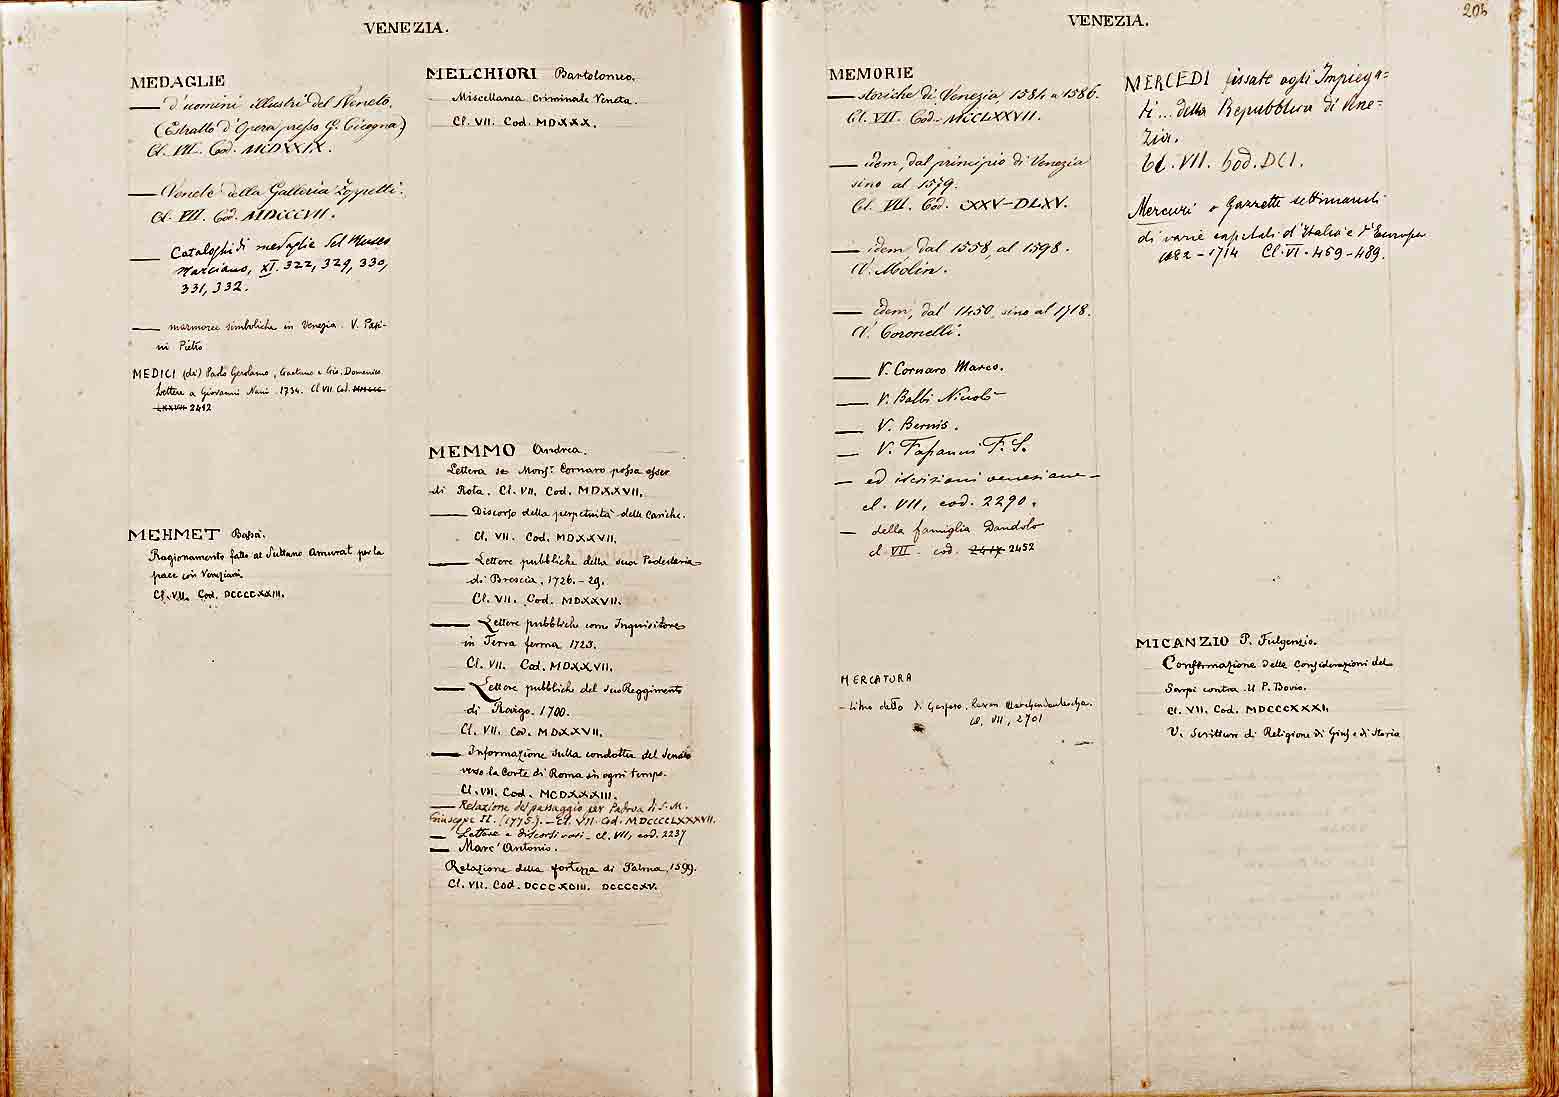 VENEZIA.
MEDAGLIE
— d'uomini illustri del Veneto.
(Estratto d'Opera presso G. Cicogna)
Cl. VII. Cod. MCDXXIX.
— Venete della Galleria Zoppetti.
Cl. VII. Cod. MDCCCVII.
— Cataloghi di medaglie del Museo
Marciano, XI. 322, 329, 330,
331, 332.
— marmoree simboliche in Venezia. V. Pasi-
ni Pietro
MEDICI (de') Paolo Gerolamo, Gaetano e Gio. Domenico
Lettere a Giovanni Nani 1734. Cl VII Cod.
LXXVII 2412
MEHMET Bassà.
Ragionamento fatto al Sultano Amurat per la
pace coi Veneziani
Cl. VII. Cod. DCCCCXXIII.
MELCHIORI Bartolomeo.
Miscellanea criminale Veneta.
Cl. VII. Cod. MDXXX.
MEMMO Andrea.
Lettera se Monsr. Cornaro possa esser
di Rota. Cl. VII. Cod. MDXXVII.
— Discorso della perpetuità delle Cariche.
Cl. VII. Cod. MDXXVII.
— Lettere pubbliche della sua Podesteria
di Brescia. 1726.-29.
Cl. VII. Cod. MDXXVII.
— Lettere pubbliche come Inquisitore
in Terra ferma 1723.
Cl. VII. Cod. MDXXVII.
— Lettere pubbliche del suo Reggimento
di Rovigo. 1700.
Cl. VII. Cod. MDXXVII.
— Informazione sulla condotta del Senato
verso la Corte di Roma in ogni tempo.
Cl. VII. Cod. MCDXXXIII.
— Relazione del passaggio per Padova di S. M.
Giuseppe II. (1775). - Cl. VII. Cod. MDCCCCLXXXVII.
— Lettere e discorsi vari - cl. VII, cod. 2237
— Marc' Antonio.
Relazione della fortezza di Palma, 1599.
Cl. VII. Cod. DCCCXCIII. DCCCCXV.
VENEZIA.
205
MEMORIE
— storiche di Venezia, 1584 a 1586.
Cl. VII. Cod. MCCLXXVII.
— idem, dal principio di Venezia
sino al 1579.
Cl. VII. Cod. CXXV-DLXV.
— idem, dal 1558, al 1598.
V. Molin.
— idem, dal 1450 sino al 1718.
V. Coronelli.
— V. Cornaro Marco.
— V. Balbi Nicolò
— V. Bernis.
— V. Fapanni F. S.
— ed iscrizioni veneziane -
cl. VII, cod. 2290.
— della famiglia Dandolo
cl VII. cod. 2452
MERCATURA
- Libro detto di
cl. VII, 2701
MERCEDI fissate agli Impiega=
ti... della Repubblica di Vene=
zia.
Cl. VII. Cod. DCI.
Mercuri o Gazzette settimanali
di varie capitali d'Italia e d'Europa
1682-1714 Cl. VI. 459-489.
MICANZIO P. Fulgenzio.
Confermazione delle Considerazioni del
Sarpi contra il P. Bovio.
Cl. VII. Cod. MDCCCXXXI.
V. Scritture di Religione di Giusp e di Storia